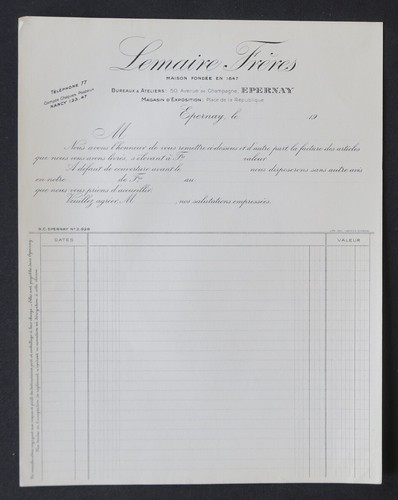 Lemaire Frères
MAISON FONDÉE EN 1847
BUREAUX & ATELIERS: 30, Avenue de Champagne EPERNAY
MAGASIN D'EXPOSITION: Place de la République
TÉLÉPHONE 77
Compte Chèques Postaux
NANCY 123.47
Epernay, le 19
M
Nous avons l'honneur de vous remettre ci-dessous et d'autre part la facture des articles
que nous vous avons livrés, s'élevant à Frs valeur
A défaut de couverture avant le nous disposerons sans autre avis
en notre de Frs au
que nous vous prions d'accueillir.
Veuillez agréer M , nos salutations empressées.
R.C. EPERNAY Nº
DATES VALEUR